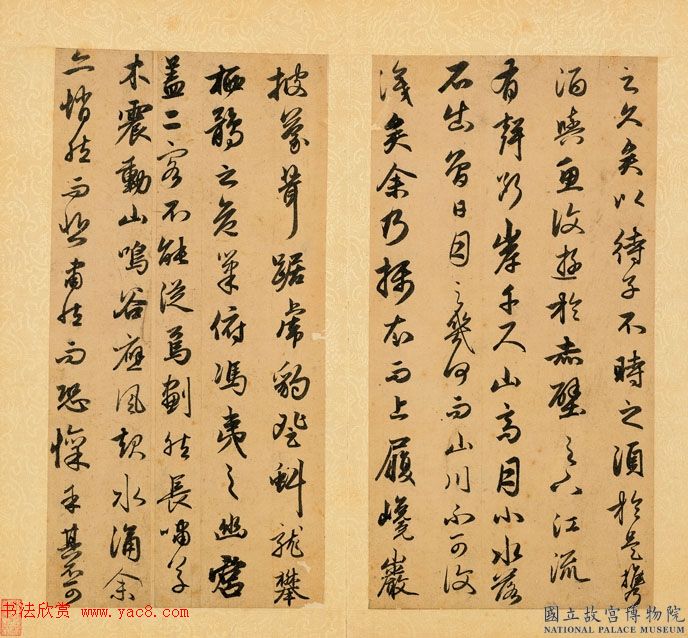 之久矣以待子不時之須於是攜
酒與魚復遊於赤壁之下江流
有聲斷岸千尺山高月小水落
石出曾日月之幾何而山川不可復
識矣余乃攝衣而上履巉巖
披蒙茸踞虎豹登蚪龍攀
栖鶻之危巢俯馮夷之幽宮
蓋二客不能從焉劃然長嘯草
木震動山鳴谷應風起水涌余
亦悄然而悲肅然而恐懍乎其不可
书法欣赏 www.yac8.com
國立故宮博物院
NATIONAL PALACE MUSEUM